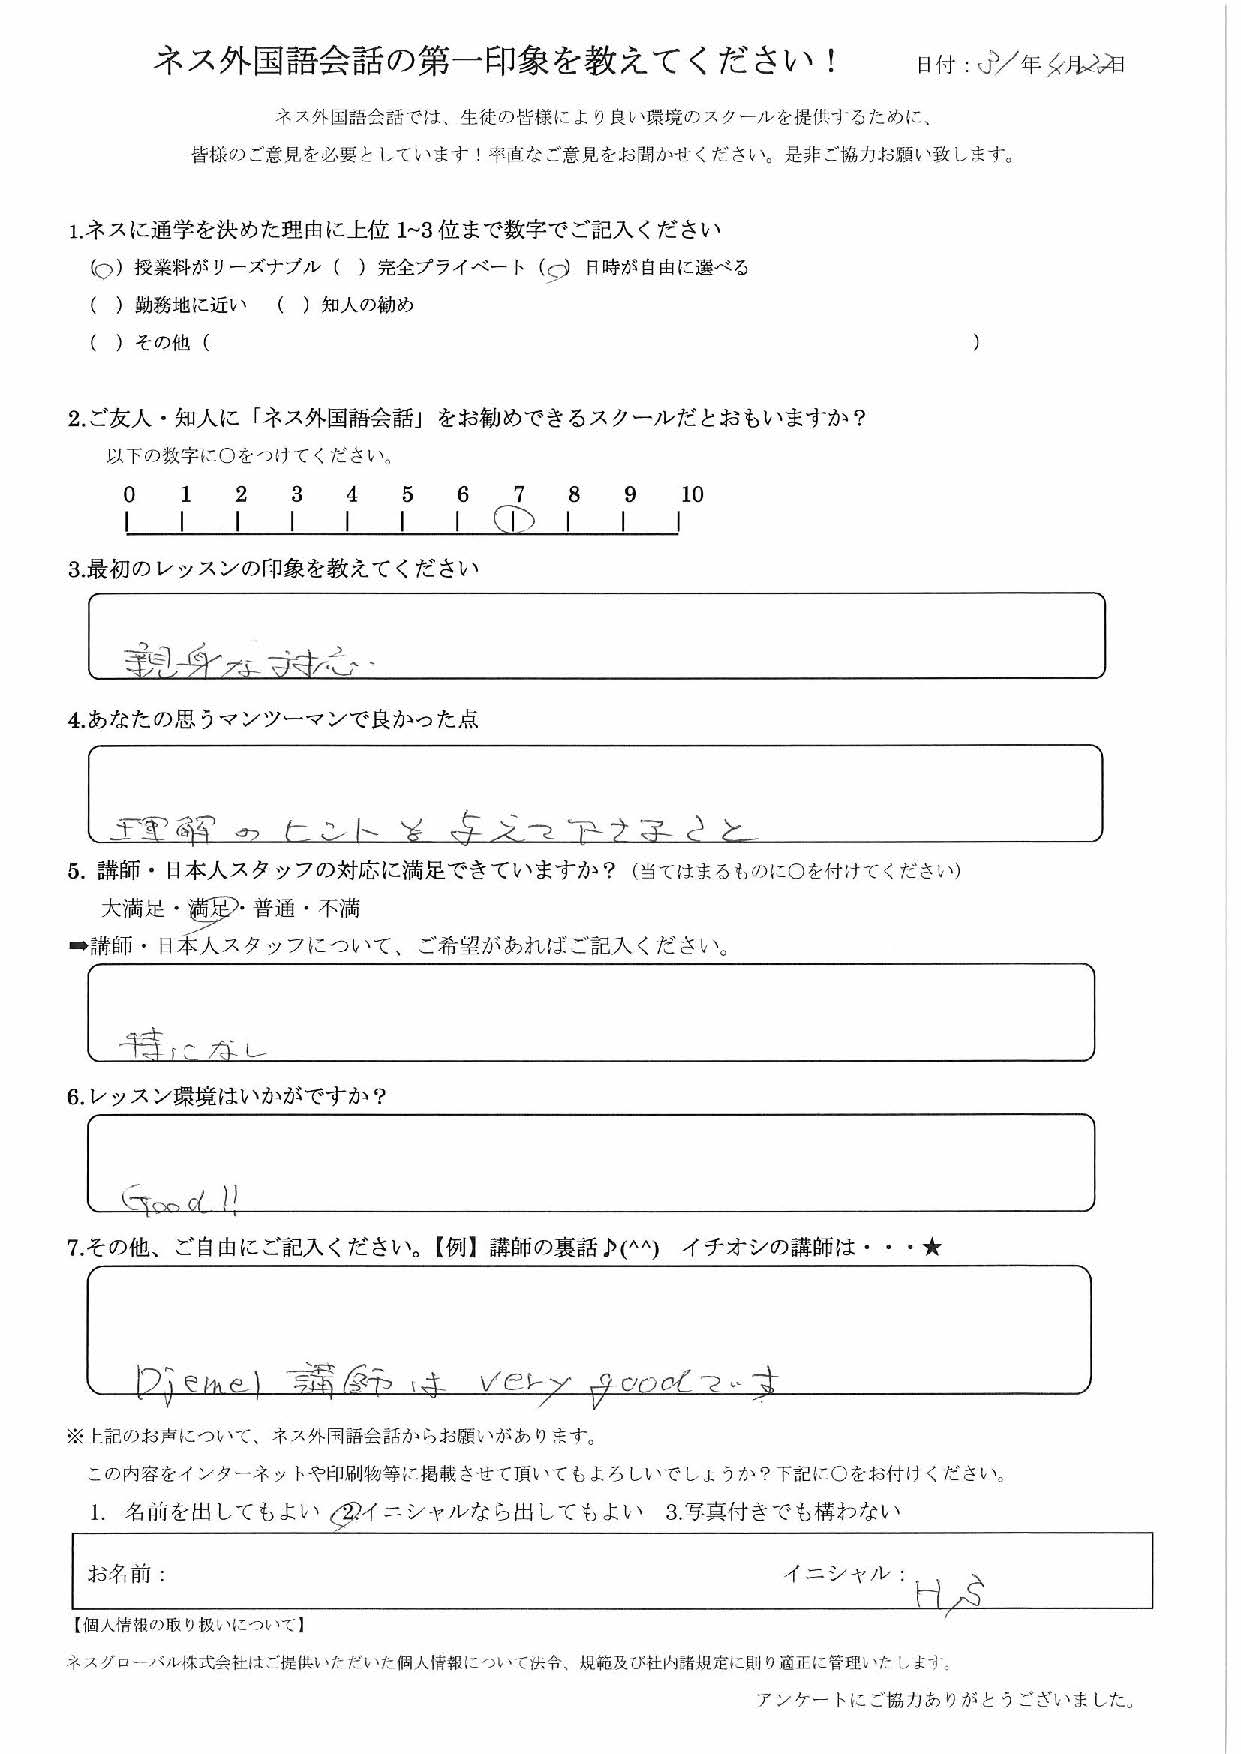 ネス外国語会話の第一印象を教えてください！ 日付：31年4月22日
ネス外国語会話では、生徒の皆様により良い環境のスクールを提供するために、
皆様のご意見を必要としています！率直なご意見をお聞かせください。是非ご協力お願い致します。
1.ネスに通学を決めた理由に上位 1~3 位まで数字でご記入ください
（○）授業料がリーズナブル（ ）完全プライベート（○）日時が自由に選べる
（ ）勤務地に近い （ ）知人の勧め
（ ）その他（ ）
2.ご友人・知人に「ネス外国語会話」をお勧めできるスクールだとおもいますか？
以下の数字に○をつけてください。
0 1 2 3 4 5 6 7 8 9 10
3.最初のレッスンの印象を教えてください
親身な対応.
4.あなたの思うマンツーマンで良かった点
理解のヒントを与えて下さること
5. 講師・日本人スタッフの対応に満足できていますか？（当てはまるものに○を付けてください）
大満足・満足・普通・不満
➡講師・日本人スタッフについて、ご希望があればご記入ください。
特になし
6.レッスン環境はいかがですか？
Good!!
7.その他、ご自由にご記入ください。【例】講師の裏話♪(^^) イチオシの講師は・・・★
Djemel 講師は very goodです
※上記のお声について、ネス外国語会話からお願いがあります。
この内容をインターネットや印刷物等に掲載させて頂いてもよろしいでしょうか？下記に○をお付けください。
1. 名前を出してもよい 2.イニシャルなら出してもよい 3.写真付きでも構わない
お名前： イニシャル：H,S
【個人情報の取り扱いについて】
ネスグローバル株式会社はご提供いただいた個人情報について法令、規範及び社内諸規定に則り適正に管理いたします。
アンケートにご協力ありがとうございました。